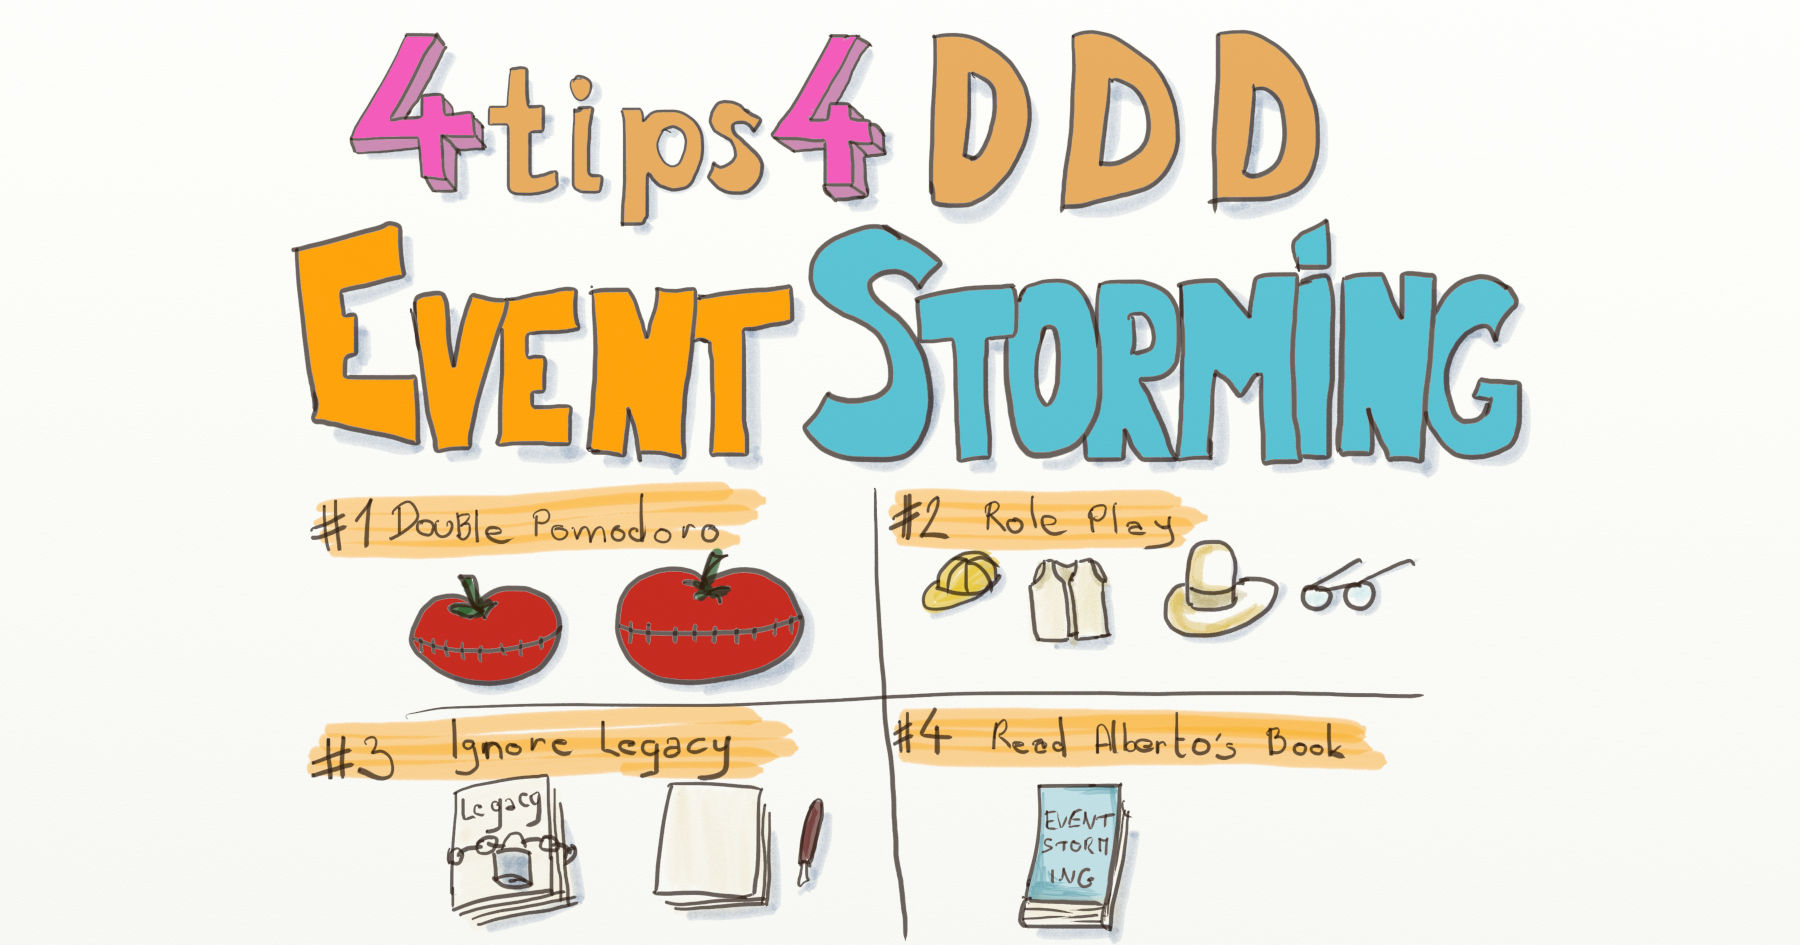 4tips4 DDD
EVENT STORMiNG
#1 Double Pomodoro
#2 Role Play
#3 Ignore Legacy
Legacy
#4 Read Alberto's Book
EVENT
STORM
ING